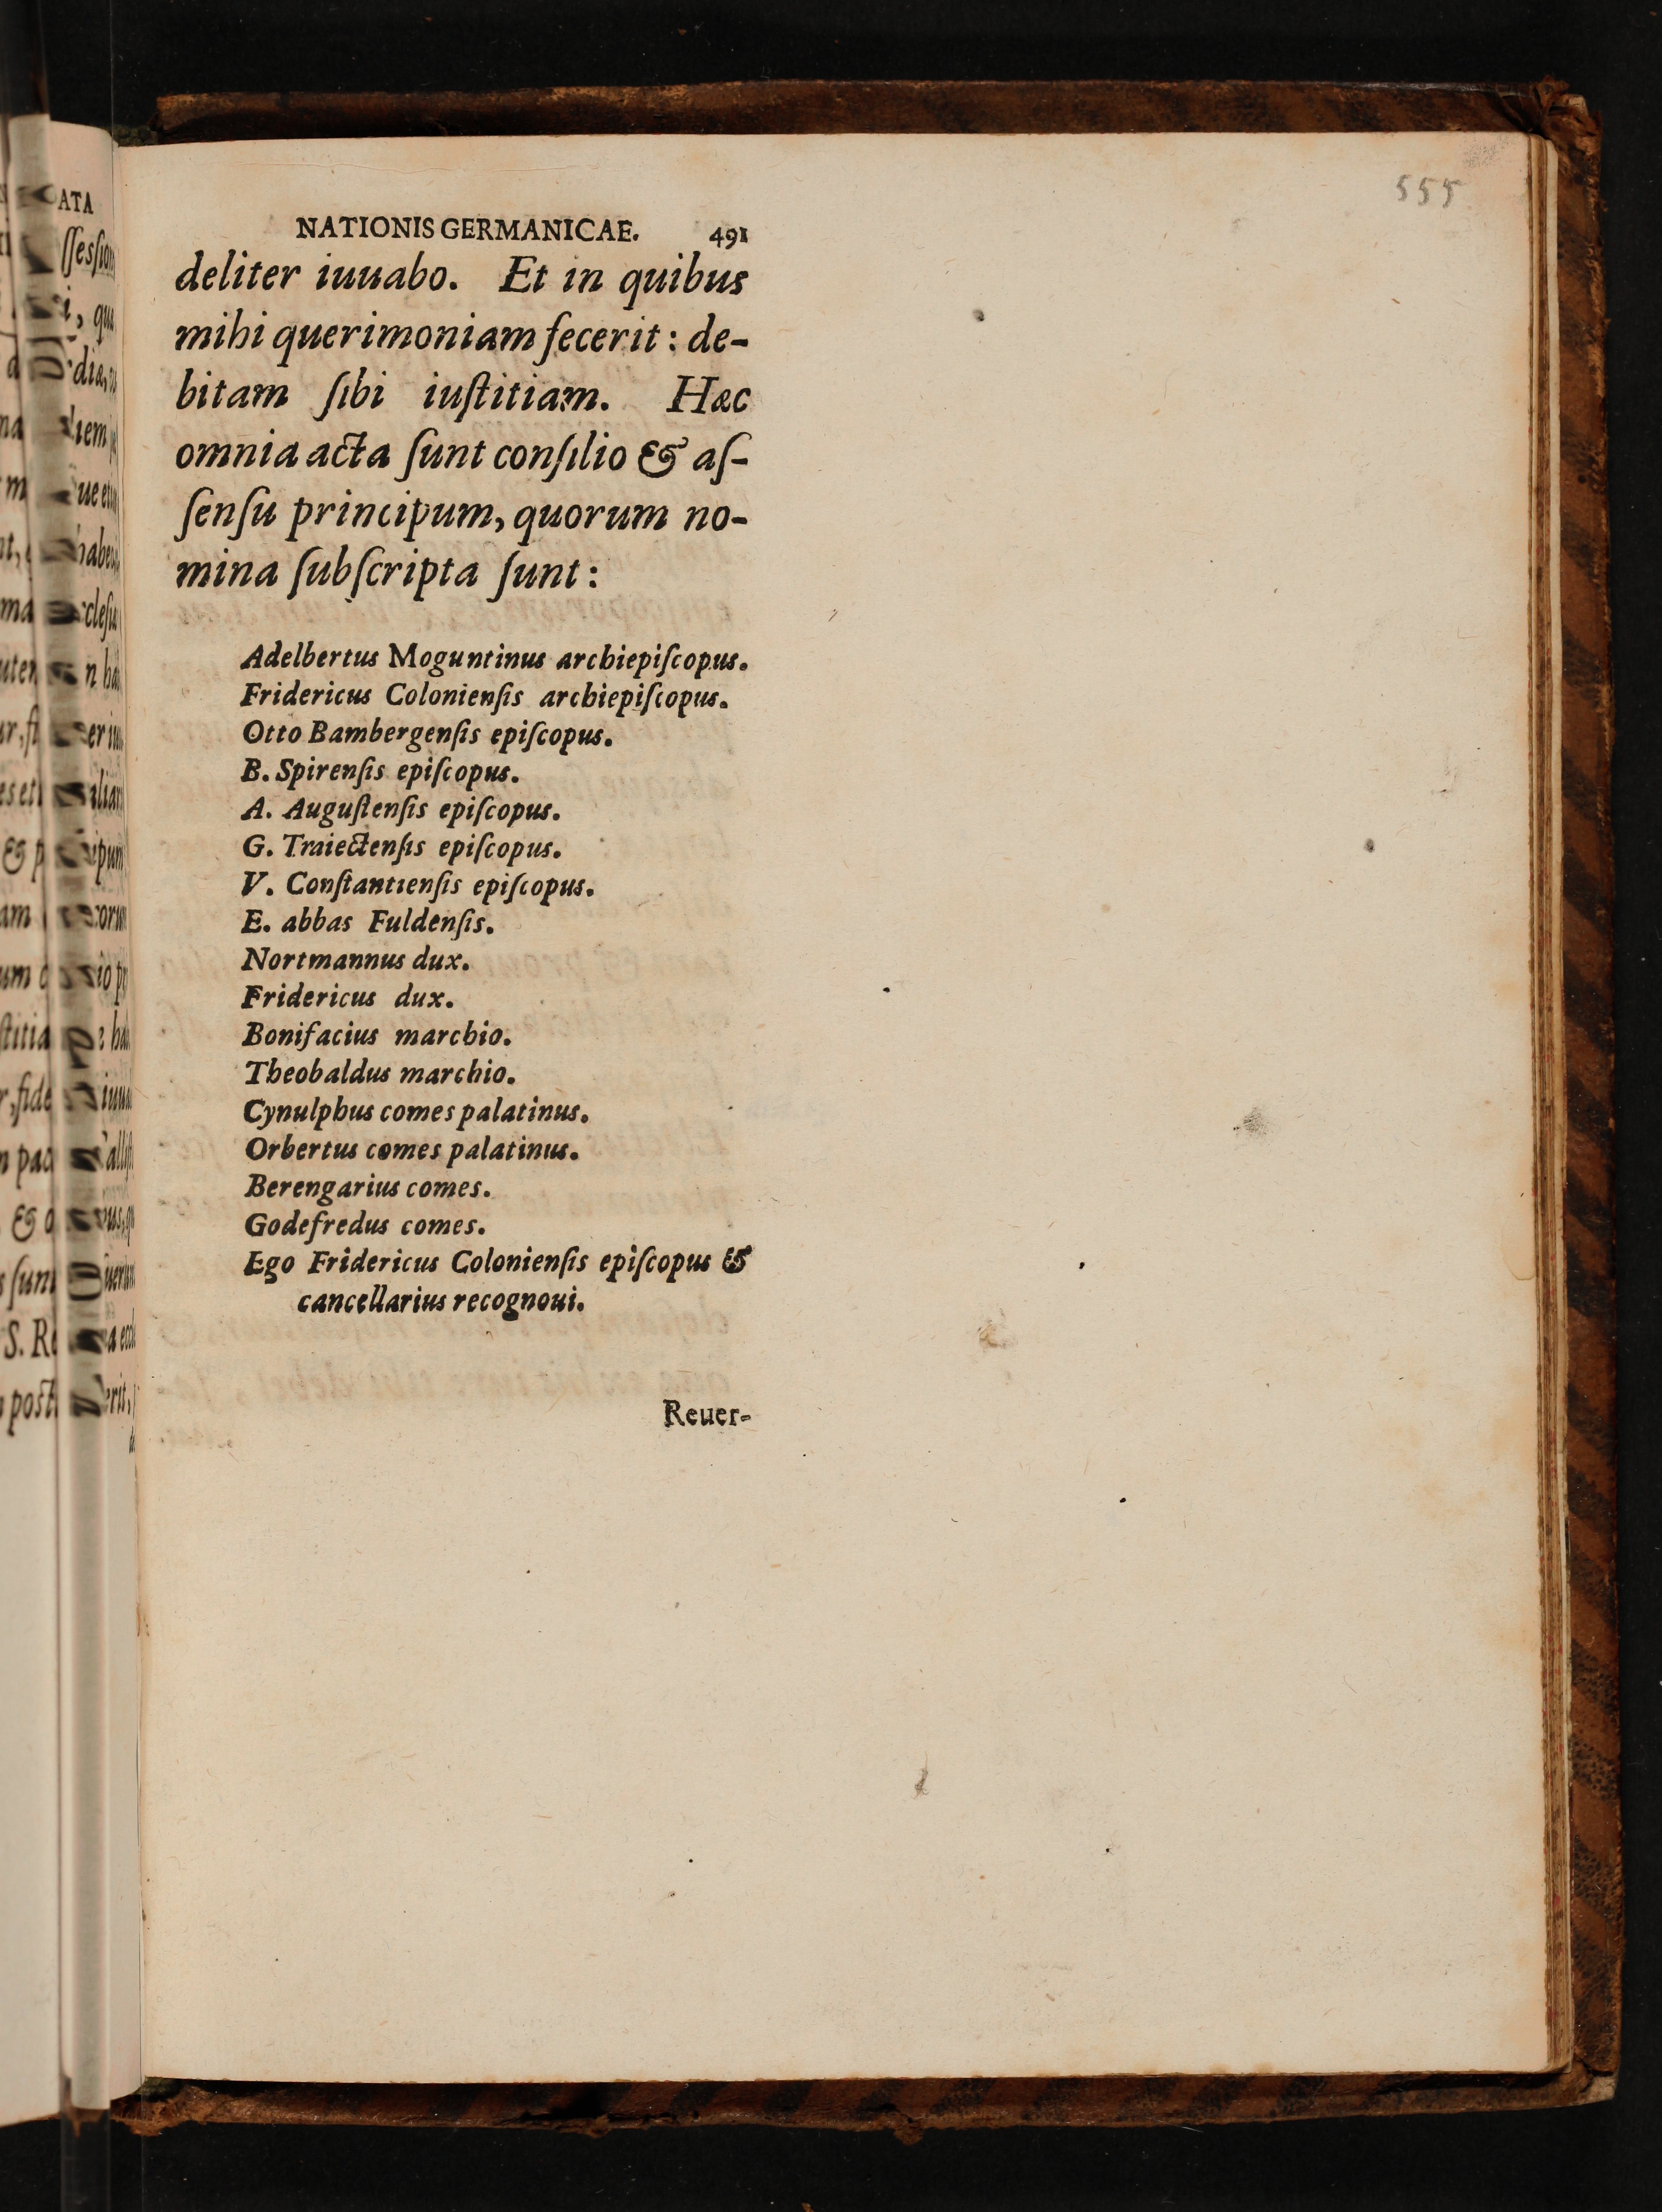 555
NATIONIS GERMANICAE. 491
deliter iuuabo. Et in quibus
mihi querimoniam fecerit: de-
bitam ſibi iuſtitiam. Hæc
omnia acta ſunt conſilio & aſ-
ſenſu principum, quorum no-
mina ſubſcripta ſunt:
Adelbertus Moguntinus archiepiſcopus.
Fridericus Colonienſis archiepiſcopus.
Otto Bambergenſis epiſcopus.
B. Spirenſis epiſcopus.
A. Auguſtenſis epiſcopus.
G. Traiectenſis epiſcopus.
V. Conſtantienſis epiſcopus.
E. abbas Fuldenſis.
Nortmannus dux.
Fridericus dux.
Bonifacius marchio.
Theobaldus marchio.
Cynulphus comes palatinus.
Orbertus comes palatinus.
Berengarius comes.
Godefredus comes.
Ego Fridericus Colonienſis epiſcopus &
cancellarius recognoui.
Reuer-